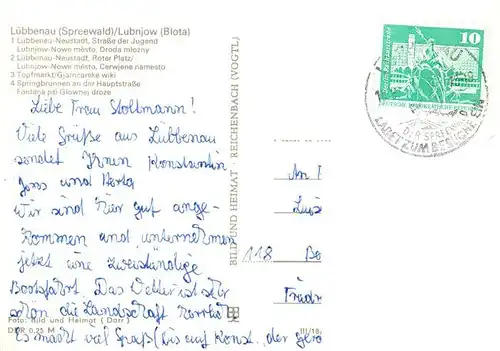 Lübbenau (Spreewald)/Lubnjow (Błota)
1 Lübbenau-Neustadt, Straße der Jugend
Lubnjow-Nowe město, Droda młoźiny
2 Lübbenau-Neustadt, Roter Platz/
Lubnjow-Nowe město, Cerwjene naměsto
3 Topfmarkt/Gjarncarske wiki
4 Springbrunnen an der Hauptstraße
Fontana pśi Głownej droze
Liebe Frau Stollmann!
Viele Grüße aus Lübbenau
sendet Ihnen Konstantin
Jens und Herta
wir sind hier gut ange-
kommen und unternehmen
jetzt eine zweistündige
Bootsfahrt. Das Wetter ist sehr
schön die Landschaft
Es macht viel Spaß (bis auf Konst. der
Foto: Bild und Heimat (Dorr)
DDR 0,25 M
BILD UND HEIMAT · REICHENBACH (VOGTL)
III/18/
10
DEUTSCHE DEMOKRATISCHE REPUBLIK
LADET ZUM BESUCHE EIN
An
118